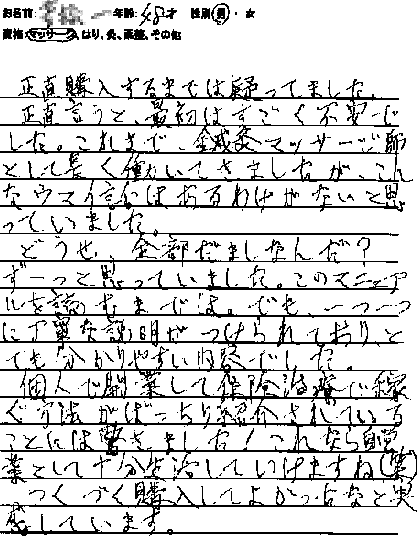 お名前 年齢: 48才 性別 男・女
資格: マッサージ、はり、灸、柔整、その他
正直購入するまでは疑ってました。
正直言うと、最初はすごく不安で
した。これまで、鍼灸マッサージ師
として長く働いてきましたが、こん
なウマイ話はあるわけがないと思
っていました。
どうせ、全部だましなんだ?
ずーっと思っていました。このマニュア
ルを読むまでは。でも、一つ一つ
に丁寧な説明がつけられており、と
ても分かりやすい内容でした。
個人で開業して保険治療で稼
ぐ方法がばっちり紹介されている
ことには驚きました！これなら自営
業として十分生活していけますね(笑)
つくづく購入してよかったなと実
感しています。